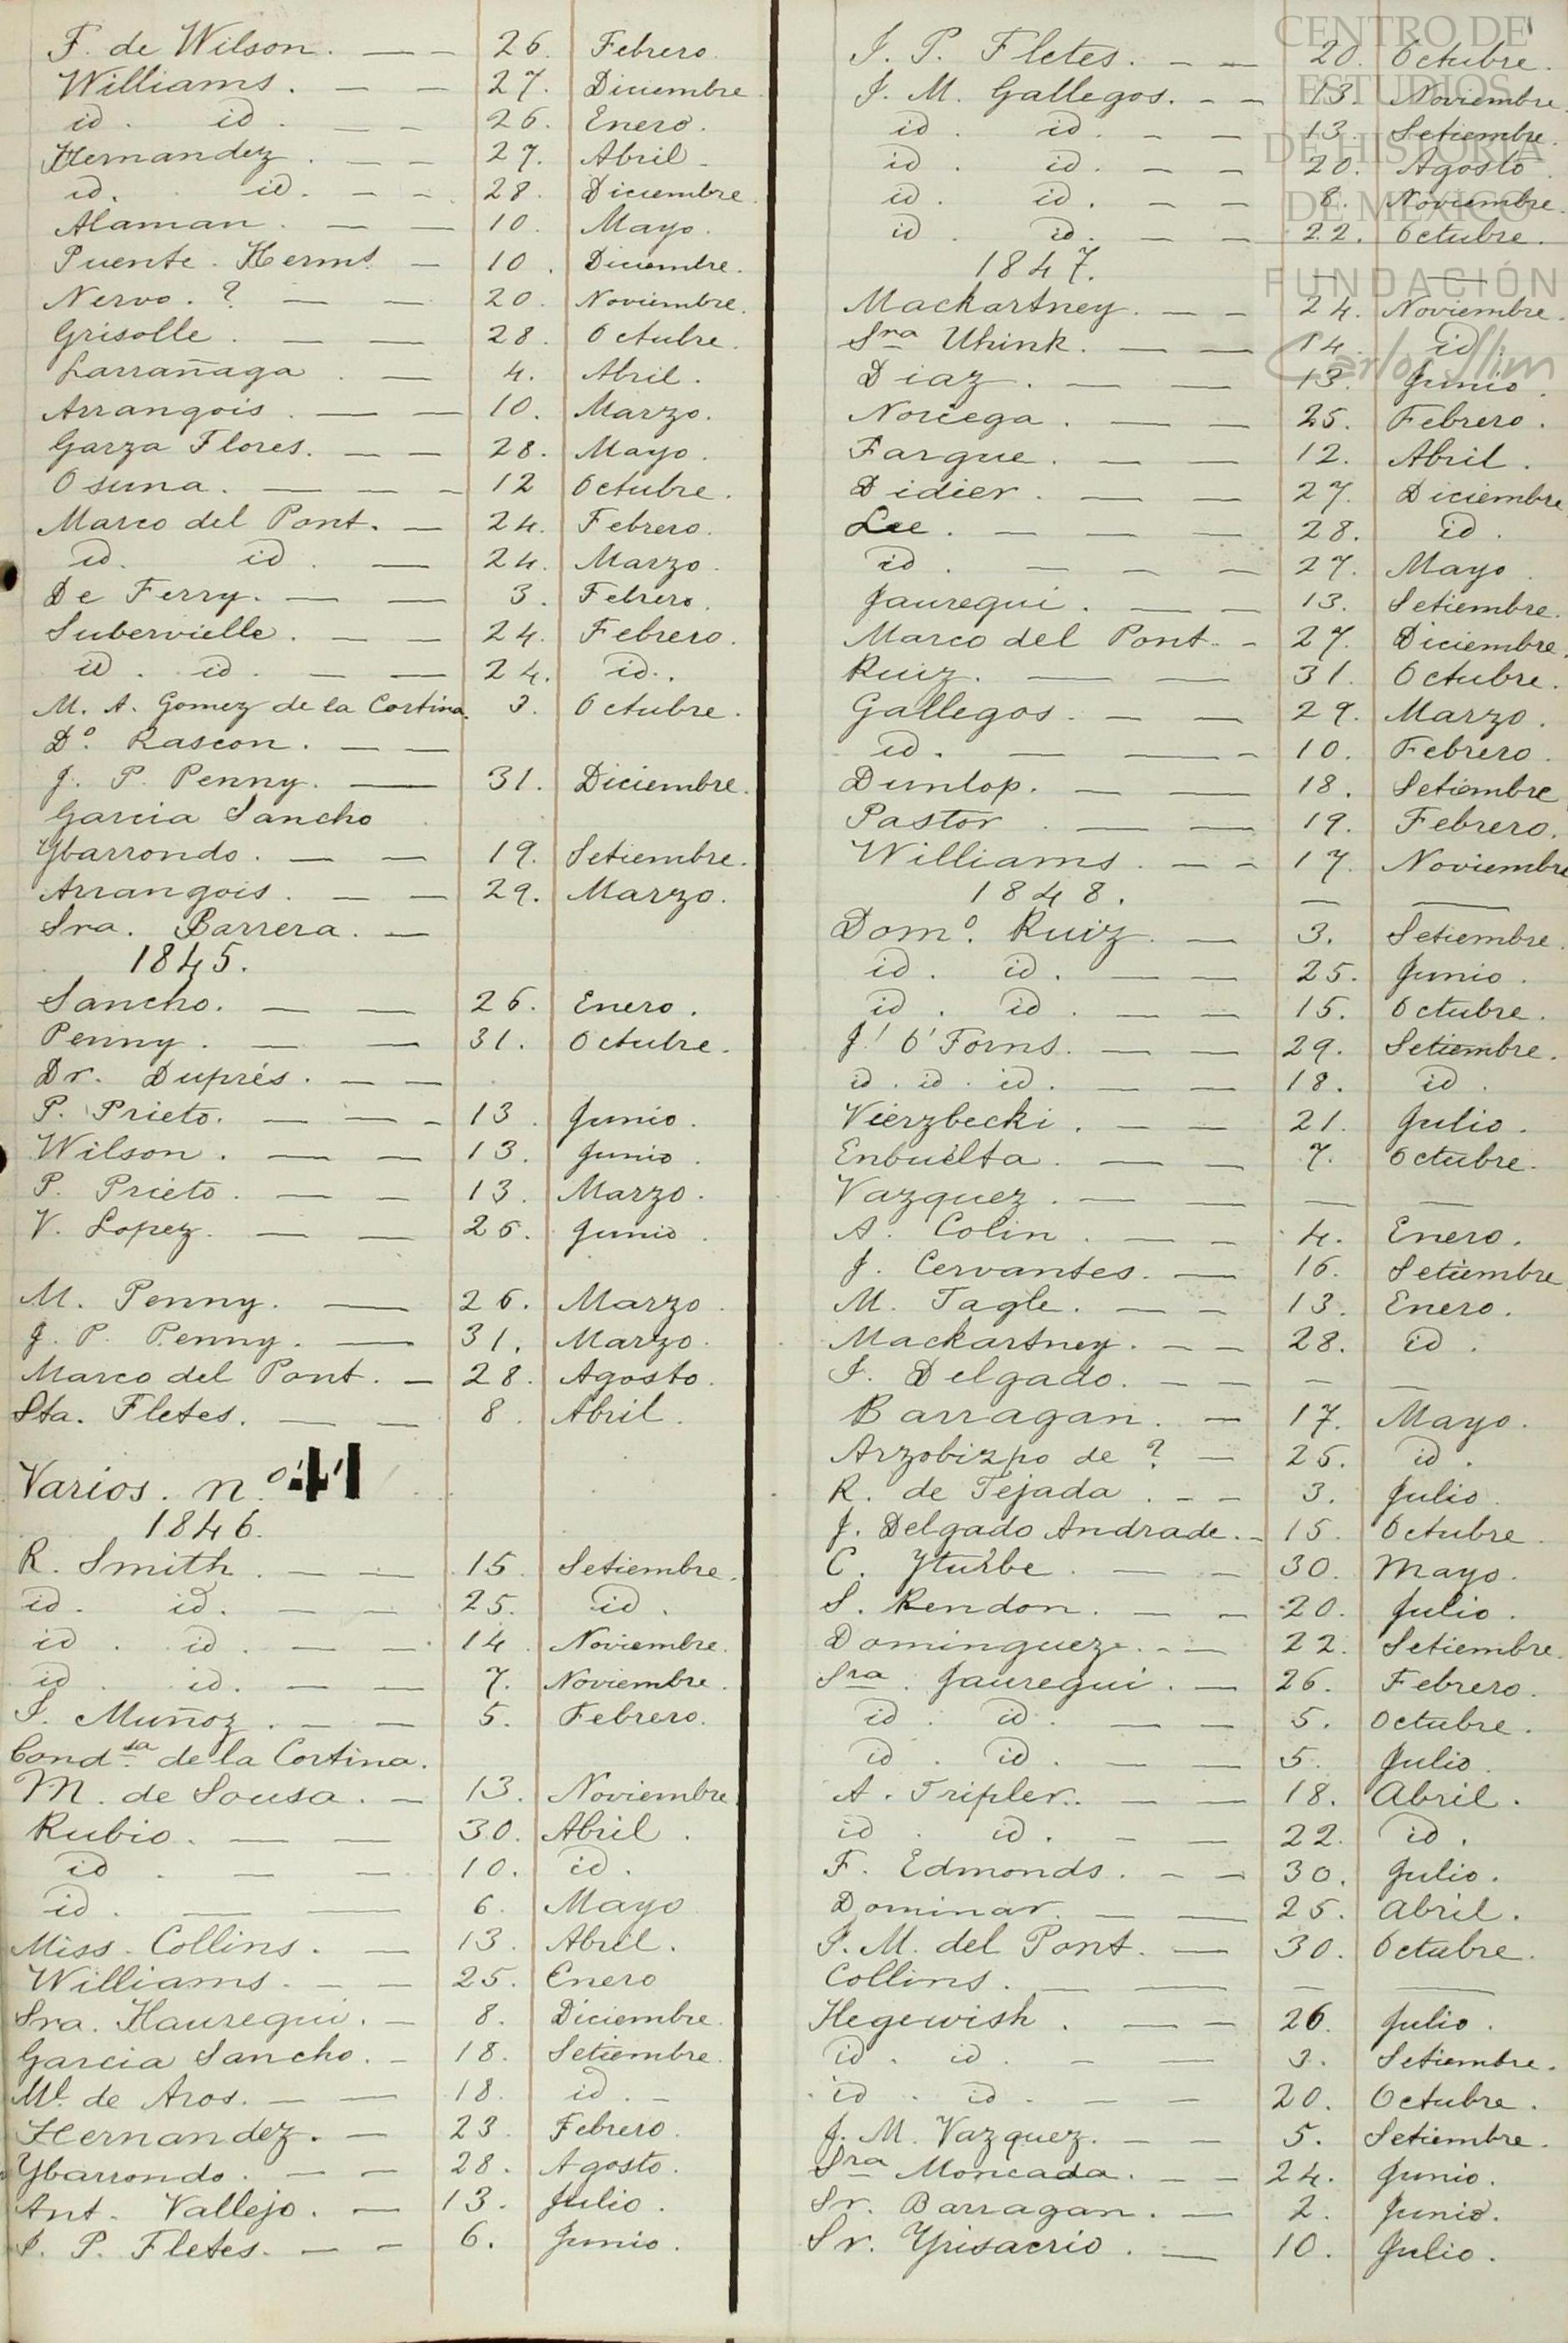 F. de Wilson. — — 26. Febrero.
Williams. — — 27. Diciembre
id. id. — — 26. Enero.
Hernandez. — — 27. Abril -
id. id. — — 28. Diciembre.
Alaman. — — 10. Mayo.
Puente. Herms. — 10. Diciembre.
Nervo. ? — — 20. Noviembre.
Grisolle. — — 28. Octubre.
Larrañaga. — 4. Abril.
Arrangois. — — 10. Marzo.
Garza Flores. — — 28. Mayo.
Osuna. — — — 12 Octubre.
Marco del Pont. — 24. Febrero.
id. id. — 24. Marzo.
De Ferry. — — 3. Febrero.
Subervielle. — — 24. Febrero.
id. id. — — 24. id.
M. A. Gomez de la Cortina. 3. Octubre.
Dº. Rascon. — —
J. P. Penny. — 31. Diciembre.
Garcia Sancho
Ybarrondo. — — 19. Setiembre.
Arrangois. — — 29. Marzo.
Sra. Barrera. —
1845.
Sancho. — — 26. Enero.
Penny. — — 31. Octubre.
Dr. Duprés. — —
P. Prieto. — — - 13. Junio.
Wilson. — — 13. Junio.
P. Prieto. — — 13. Marzo.
V. Lopez. — — 26. Junio.
M. Penny. — 26. Marzo.
J. P. Penny. — 31. Marzo.
Marco del Pont. — 28. Agosto.
Sta. Fletes. — — 8. Abril.
Varios. n.º 41
1846.
R. Smith. — — 15. Setiembre.
id. id. — — 25. id.
id. id. — — 14. Noviembre.
id. id. — — 7. Noviembre.
I. Muñoz. — — 5. Febrero.
Condsa de la Cortina.
M. de Sousa. — 13. Noviembre.
Rubio. — — 30. Abril.
id. — — 10. id.
id. — — 6. Mayo
Miss. Collins. — 13. Abril.
Williams. — — 25. Enero
Sra. Hauregui. — 8. Diciembre.
Garcia Sancho. - 18. Setiembre.
Ml. de Aros. — — 18. id. -
Hernandez. — 23. Febrero.
Ybarrondo. — — 28. Agosto.
Ant. Vallejo. — 13. Julio.
I. P. Fletes. — - 6. Junio.
I. P. Fletes. - — 20. Octubre.
J. M. Gallegos. - - 13. Noviembre.
id. id. - — 13. Setiembre.
id. id. - — 20. Agosto.
id. id. — — 8. Noviembre.
id. id. — — 22. Octubre.
1847. — —
Mackartney. — - 24. Noviembre.
Sra Uhink. — — 14. id.
Diaz. — — 13. Junio.
Noriega. — — 25. Febrero.
Fargue. — — 12. Abril.
Didier. — — 27. Diciembre
Lee. — — — 28. id.
id. — — — 27. Mayo.
Jauregui. — — 13. Setiembre.
Marco del Pont. - 27. Diciembre.
Ruiz. — — 31. Octubre.
Gallegos. — — 29. Marzo.
id. — — - 10. Febrero.
Dunlop. — — 18. Setiembre
Pastor. — — 19. Febrero.
Williams. — - 17. Noviembre
1848. — —
Domº. Ruiz. — 3. Setiembre.
id. id. — — 25. Junio.
id. id. — — 15. Octubre.
J! O'Forns. — — 29. Setiembre.
id. id. id. — — 18. id.
Vierzbecki. — — 21. Julio.
Enbuelta. — — 7. Octubre.
Vazquez. — — — —
A. Colin. — - 4. Enero.
J. Cervantes. — 16. Setiembre
M. Tagle. — - 13. Enero.
Mackartney. — - 28. id.
I. Delgado. — — — —
Barragan. — 17. Mayo.
Arzobizpo de ? — 25. id.
R. de Tejada. - - 3. Julio.
J. Delgado Andrade. - 15. Octubre.
C. Yturbe. — — 30. Mayo.
S. Rendon. — - 20. Julio.
Dominguez. - — 22. Setiembre.
Sra. Jauregui. — 26. Febrero.
id. id. — — 5. Octubre.
id. id. — — 5. Julio.
A. Tripler. — — 18. Abril.
id. id. - — 22. id.
F. Edmonds. - — 30. Julio.
Dominar. — — 25. Abril.
I. M. del Pont. — 30. Octubre.
Collins. — — — —
Hegewish. — — 26. Julio.
id. id. - — 3. Setiembre.
id. id. — — 20. Octubre.
J. M. Vazquez. — — 5. Setiembre.
Sra Moncada. — - 24. Junio.
Sr. Barragan. — 2. Junio.
Sr. Yrisacrio. — 10. Julio.
CENTRO DE
ESTUDIOS
DE HISTORIA
DE MÉXICO
FUNDACIÓN
Carlos Slim